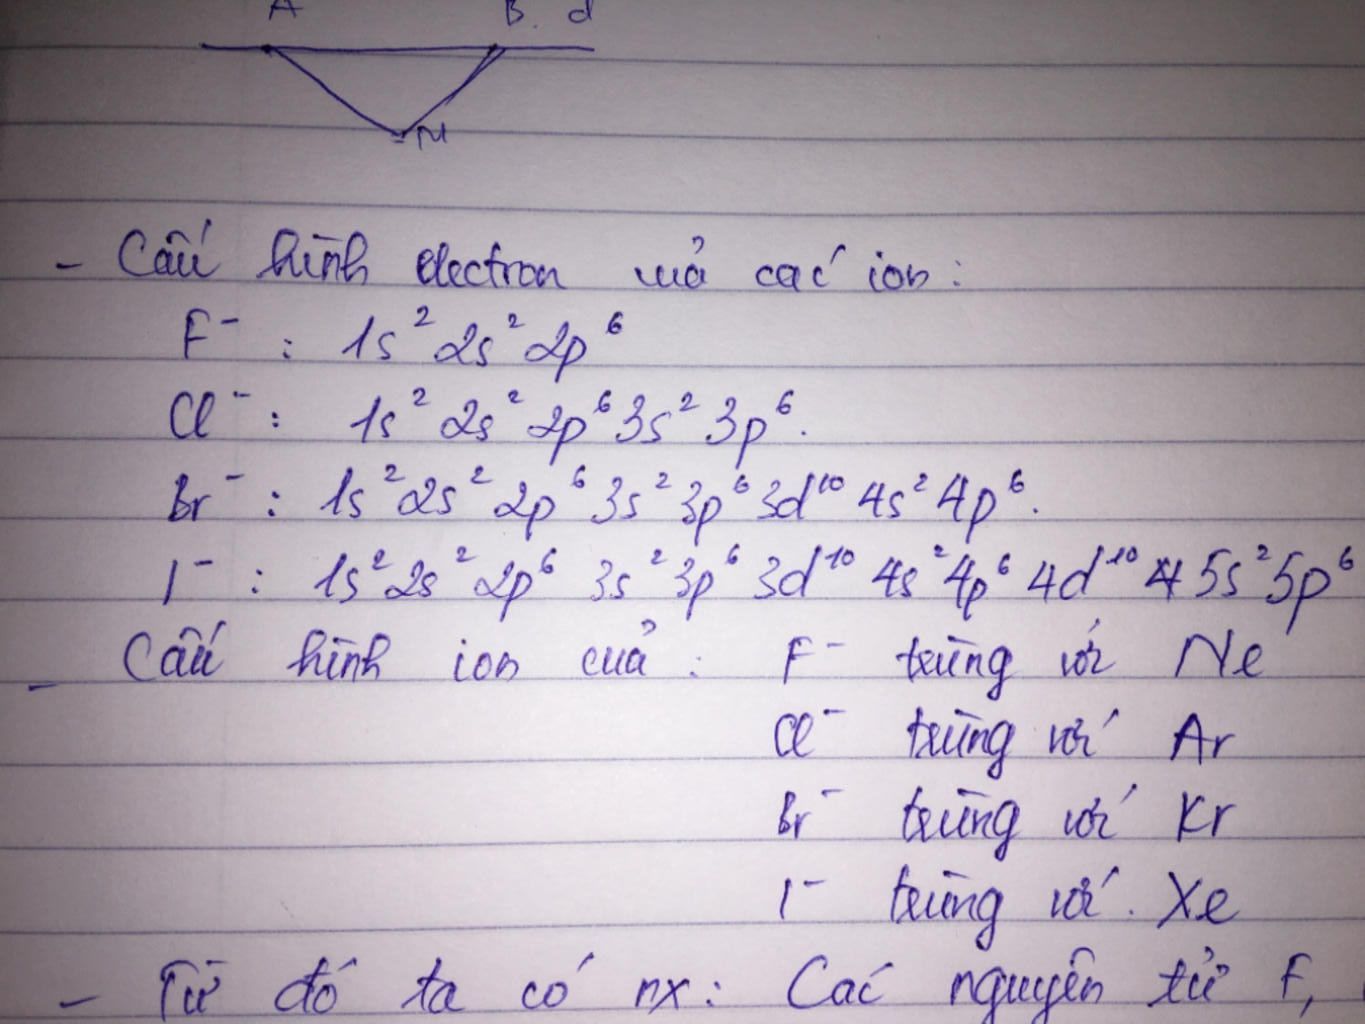 A B. d
M
- Cấu hình electron của các ion:
F⁻ : 1s² 2s² 2p⁶
Cl⁻ : 1s² 2s² 2p⁶ 3s² 3p⁶.
Br⁻ : 1s² 2s² 2p⁶ 3s² 3p⁶ 3d¹⁰ 4s² 4p⁶.
I⁻ : 1s² 2s² 2p⁶ 3s² 3p⁶ 3d¹⁰ 4s² 4p⁶ 4d¹⁰ 5s² 5p⁶
- Cấu hình ion của : F⁻ trùng với Ne
Cl⁻ trùng với Ar
Br⁻ trùng với Kr
I⁻ trùng với. Xe
- Từ đó ta có nx: Các nguyên tử F,